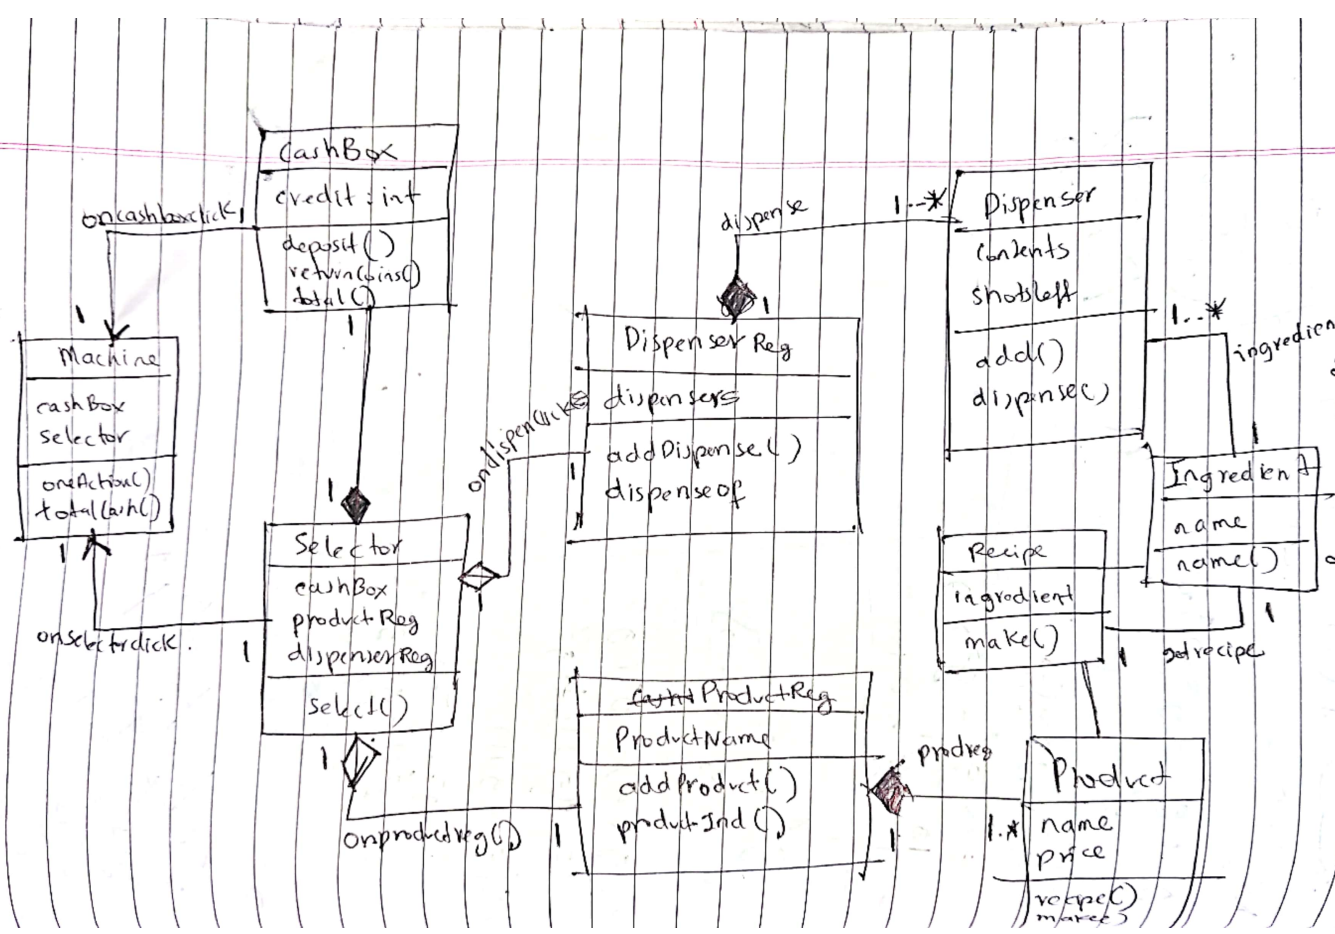 CashBox
credit : int
deposit()
returnCoins()
total()
oncashboxclick
1
1
1
Machine
cashBox
selector
oneAction()
totalCash()
1
onselectrclick.
1
1
Selector
cashBox
productReg
dispenserReg
select()
1
1
ondispenclicks
1
onproductreg()
1
dispense
1..*
1
Dispenser Reg
dispensers
addDispense()
dispenseof
Dispenser
contents
shotsleft
add()
dispense()
1..*
ingredien
1
Ingredient
name
name()
1
getrecipe
1
Recipe
ingredient
make()
ProductReg
ProductName
addProduct()
productInd()
prodreg
1
1.*
Product
name
price
recipe()
make()